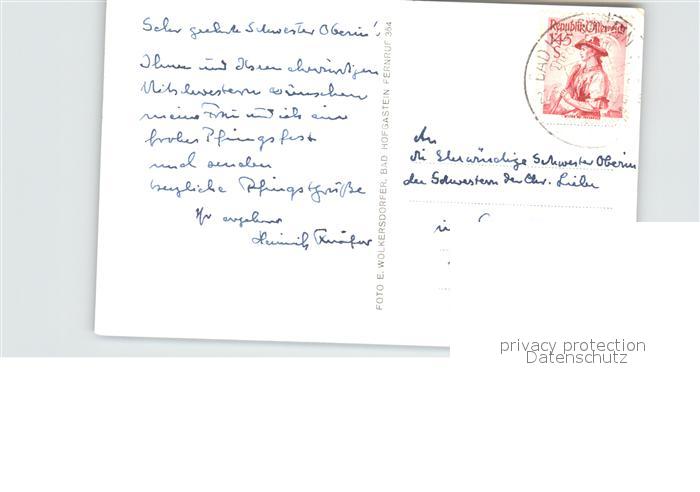 Sehr geehrte Schwester Oberin!
Ihnen und Ihren ehrwürdigen
Mitschwestern wünschen
meine Frau und ich ein
frohes Pfingstfest
und senden
herzliche Pfingstgrüße
Ihr ergebener
Heinrich
FOTO E. WOLKERSDORFER, BAD HOFGASTEIN FERNRUF 364
Republik Österreich
1.45
S
BAD
An
die Ehrwürdige Schwester Oberin
der Schwestern der Chr. Liebe
in
privacy protection
Datenschutz